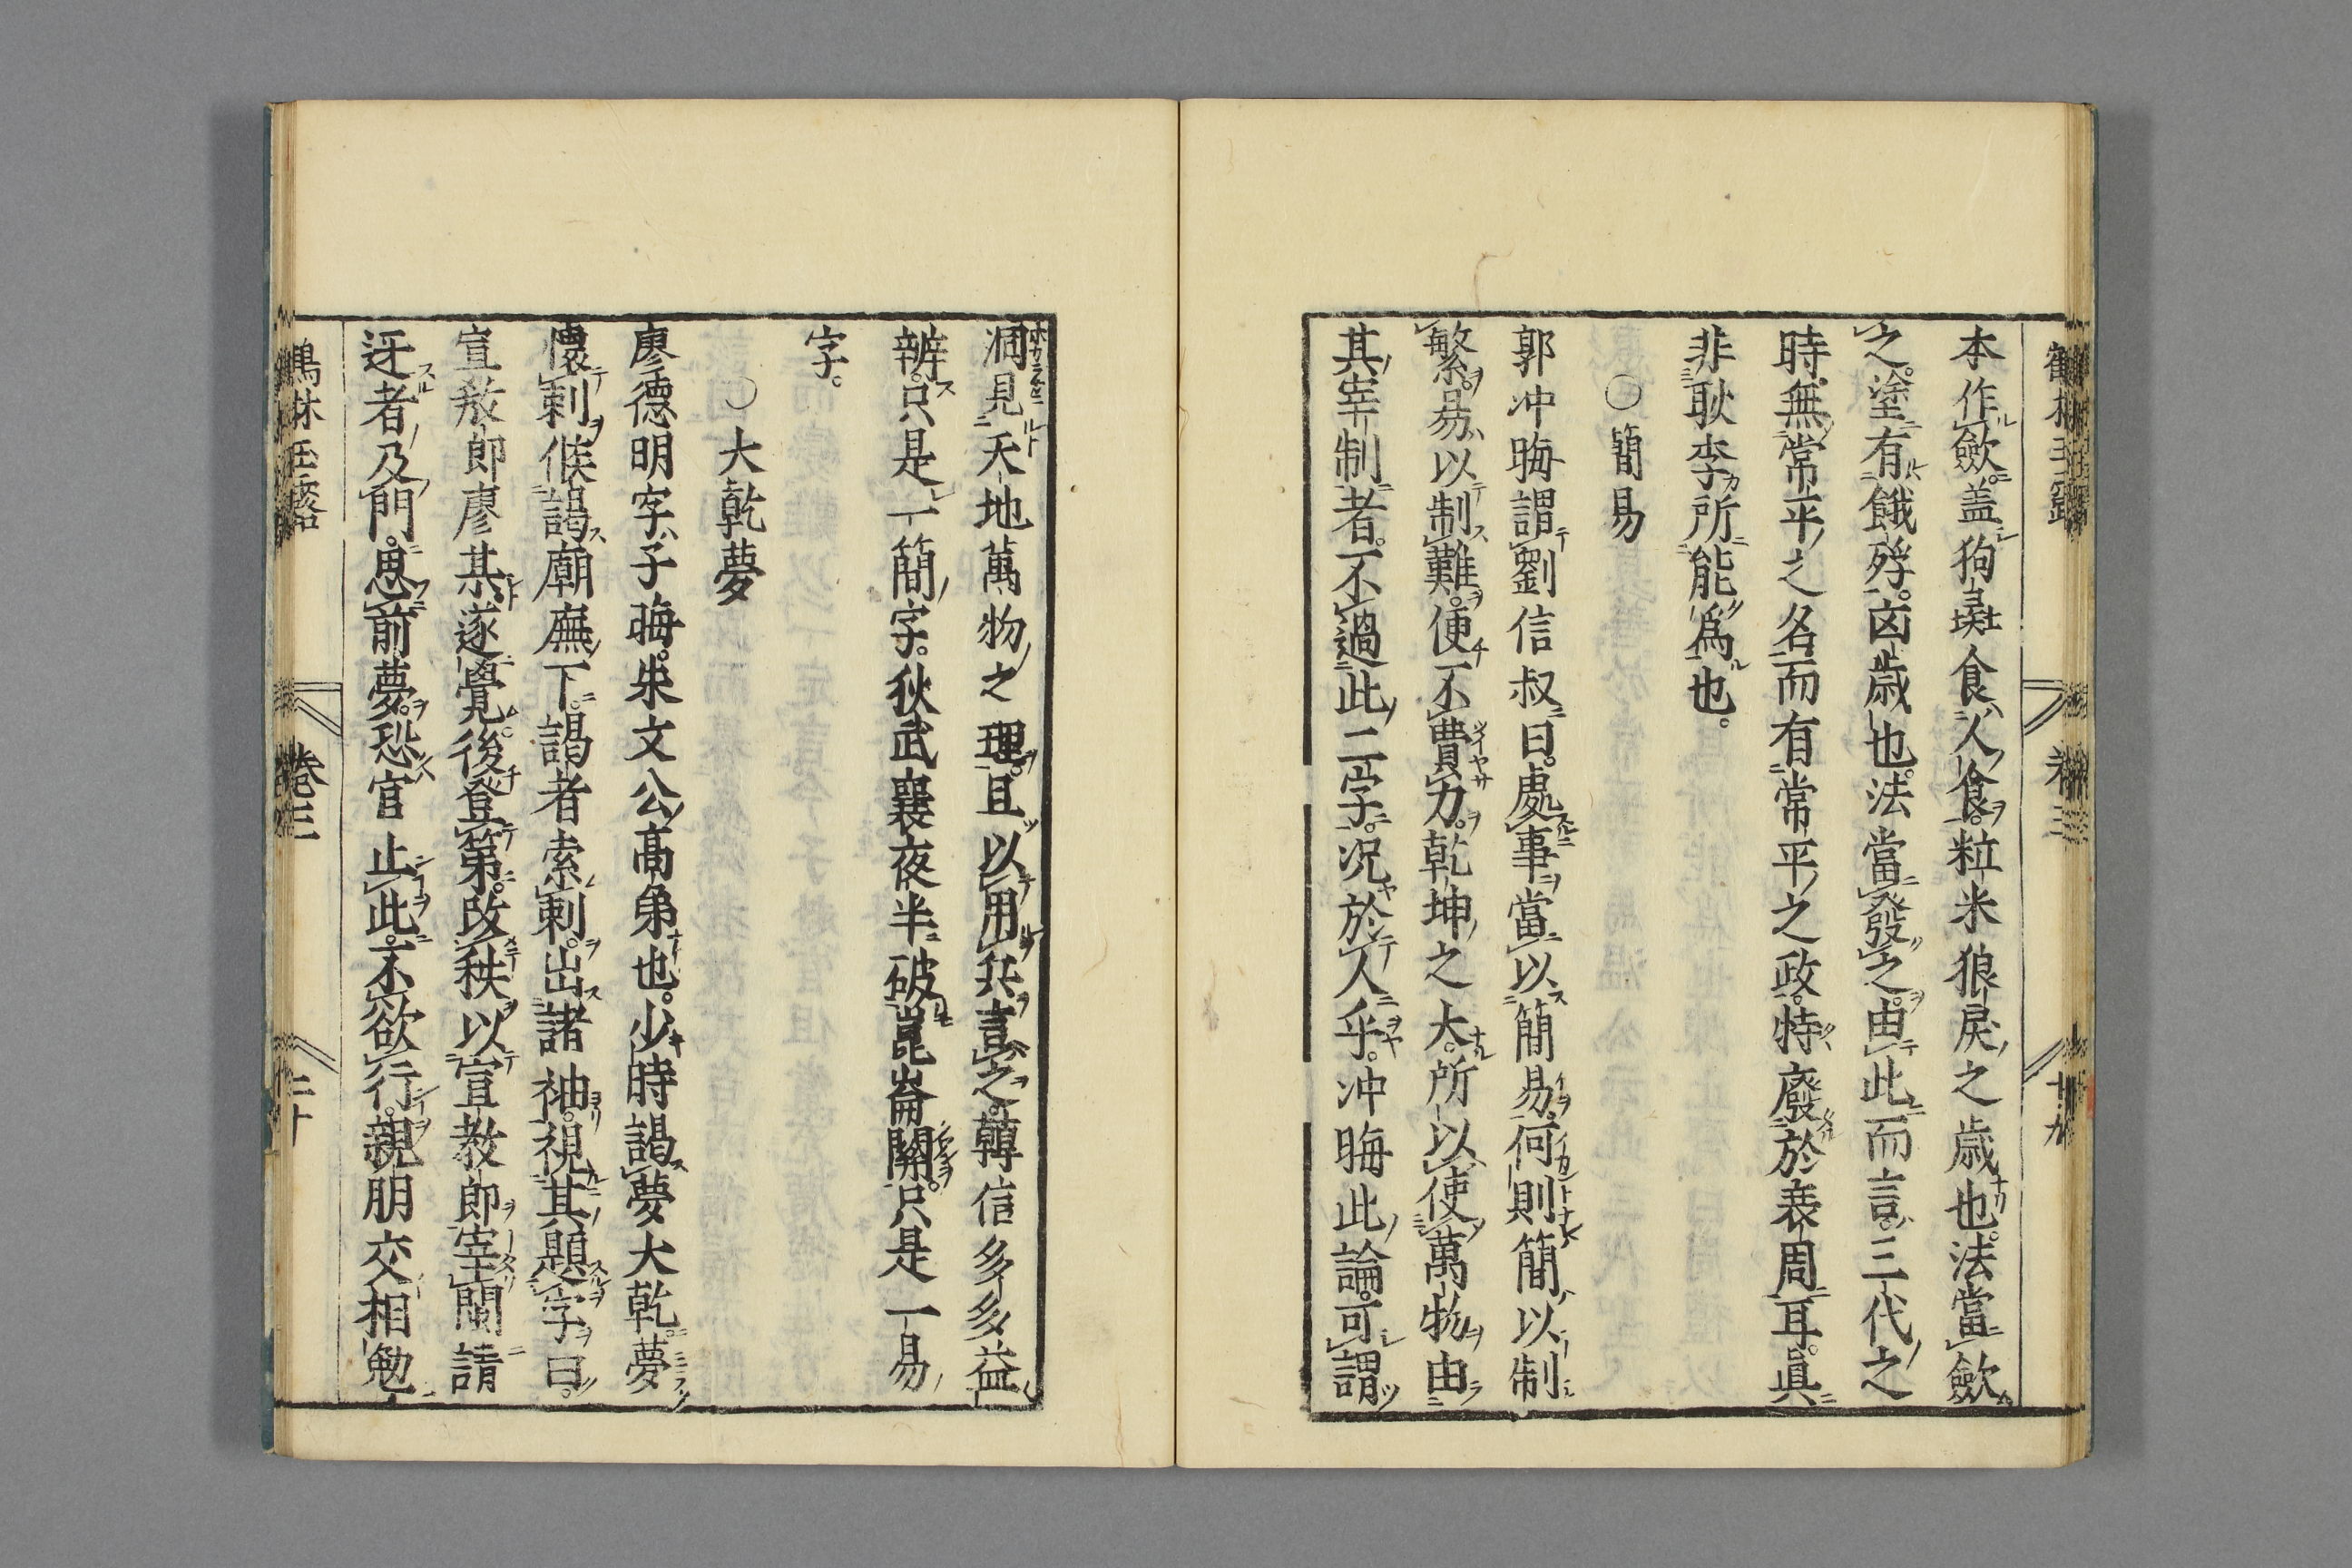 本作歛盖狗彘食人食粒米狼戾之歳也法當歛
之塗有餓殍凶歳也法當發之由此而言三代之
時無常平之名而有常平之政特廢於衰周耳眞
非耿李所能爲也
○簡易
郭冲晦謂劉信叔曰處事當以簡易何則簡以制
繁易以制難便不費力乾坤之大所以使萬物由
其宰制者不過此二字况於人乎冲晦此論可謂
洞見天地萬物之理且以用兵喜之韓信多多益
辨只是一簡字狄武襄夜半破崑崙關只是一易
字
○大乾夢
廖德明字子晦朱文公高弟也少時謁夢大乾夢
懷刺候謁廟廡下謁者索刺出諸袖視其題字曰
宣敎郎廖某遂覺後登第改秩以宣教郎宰閩請
迓者及門思前夢恐官止此不欲行親朋交相勉
鶴林玉露 卷三 二十
卷三 十九